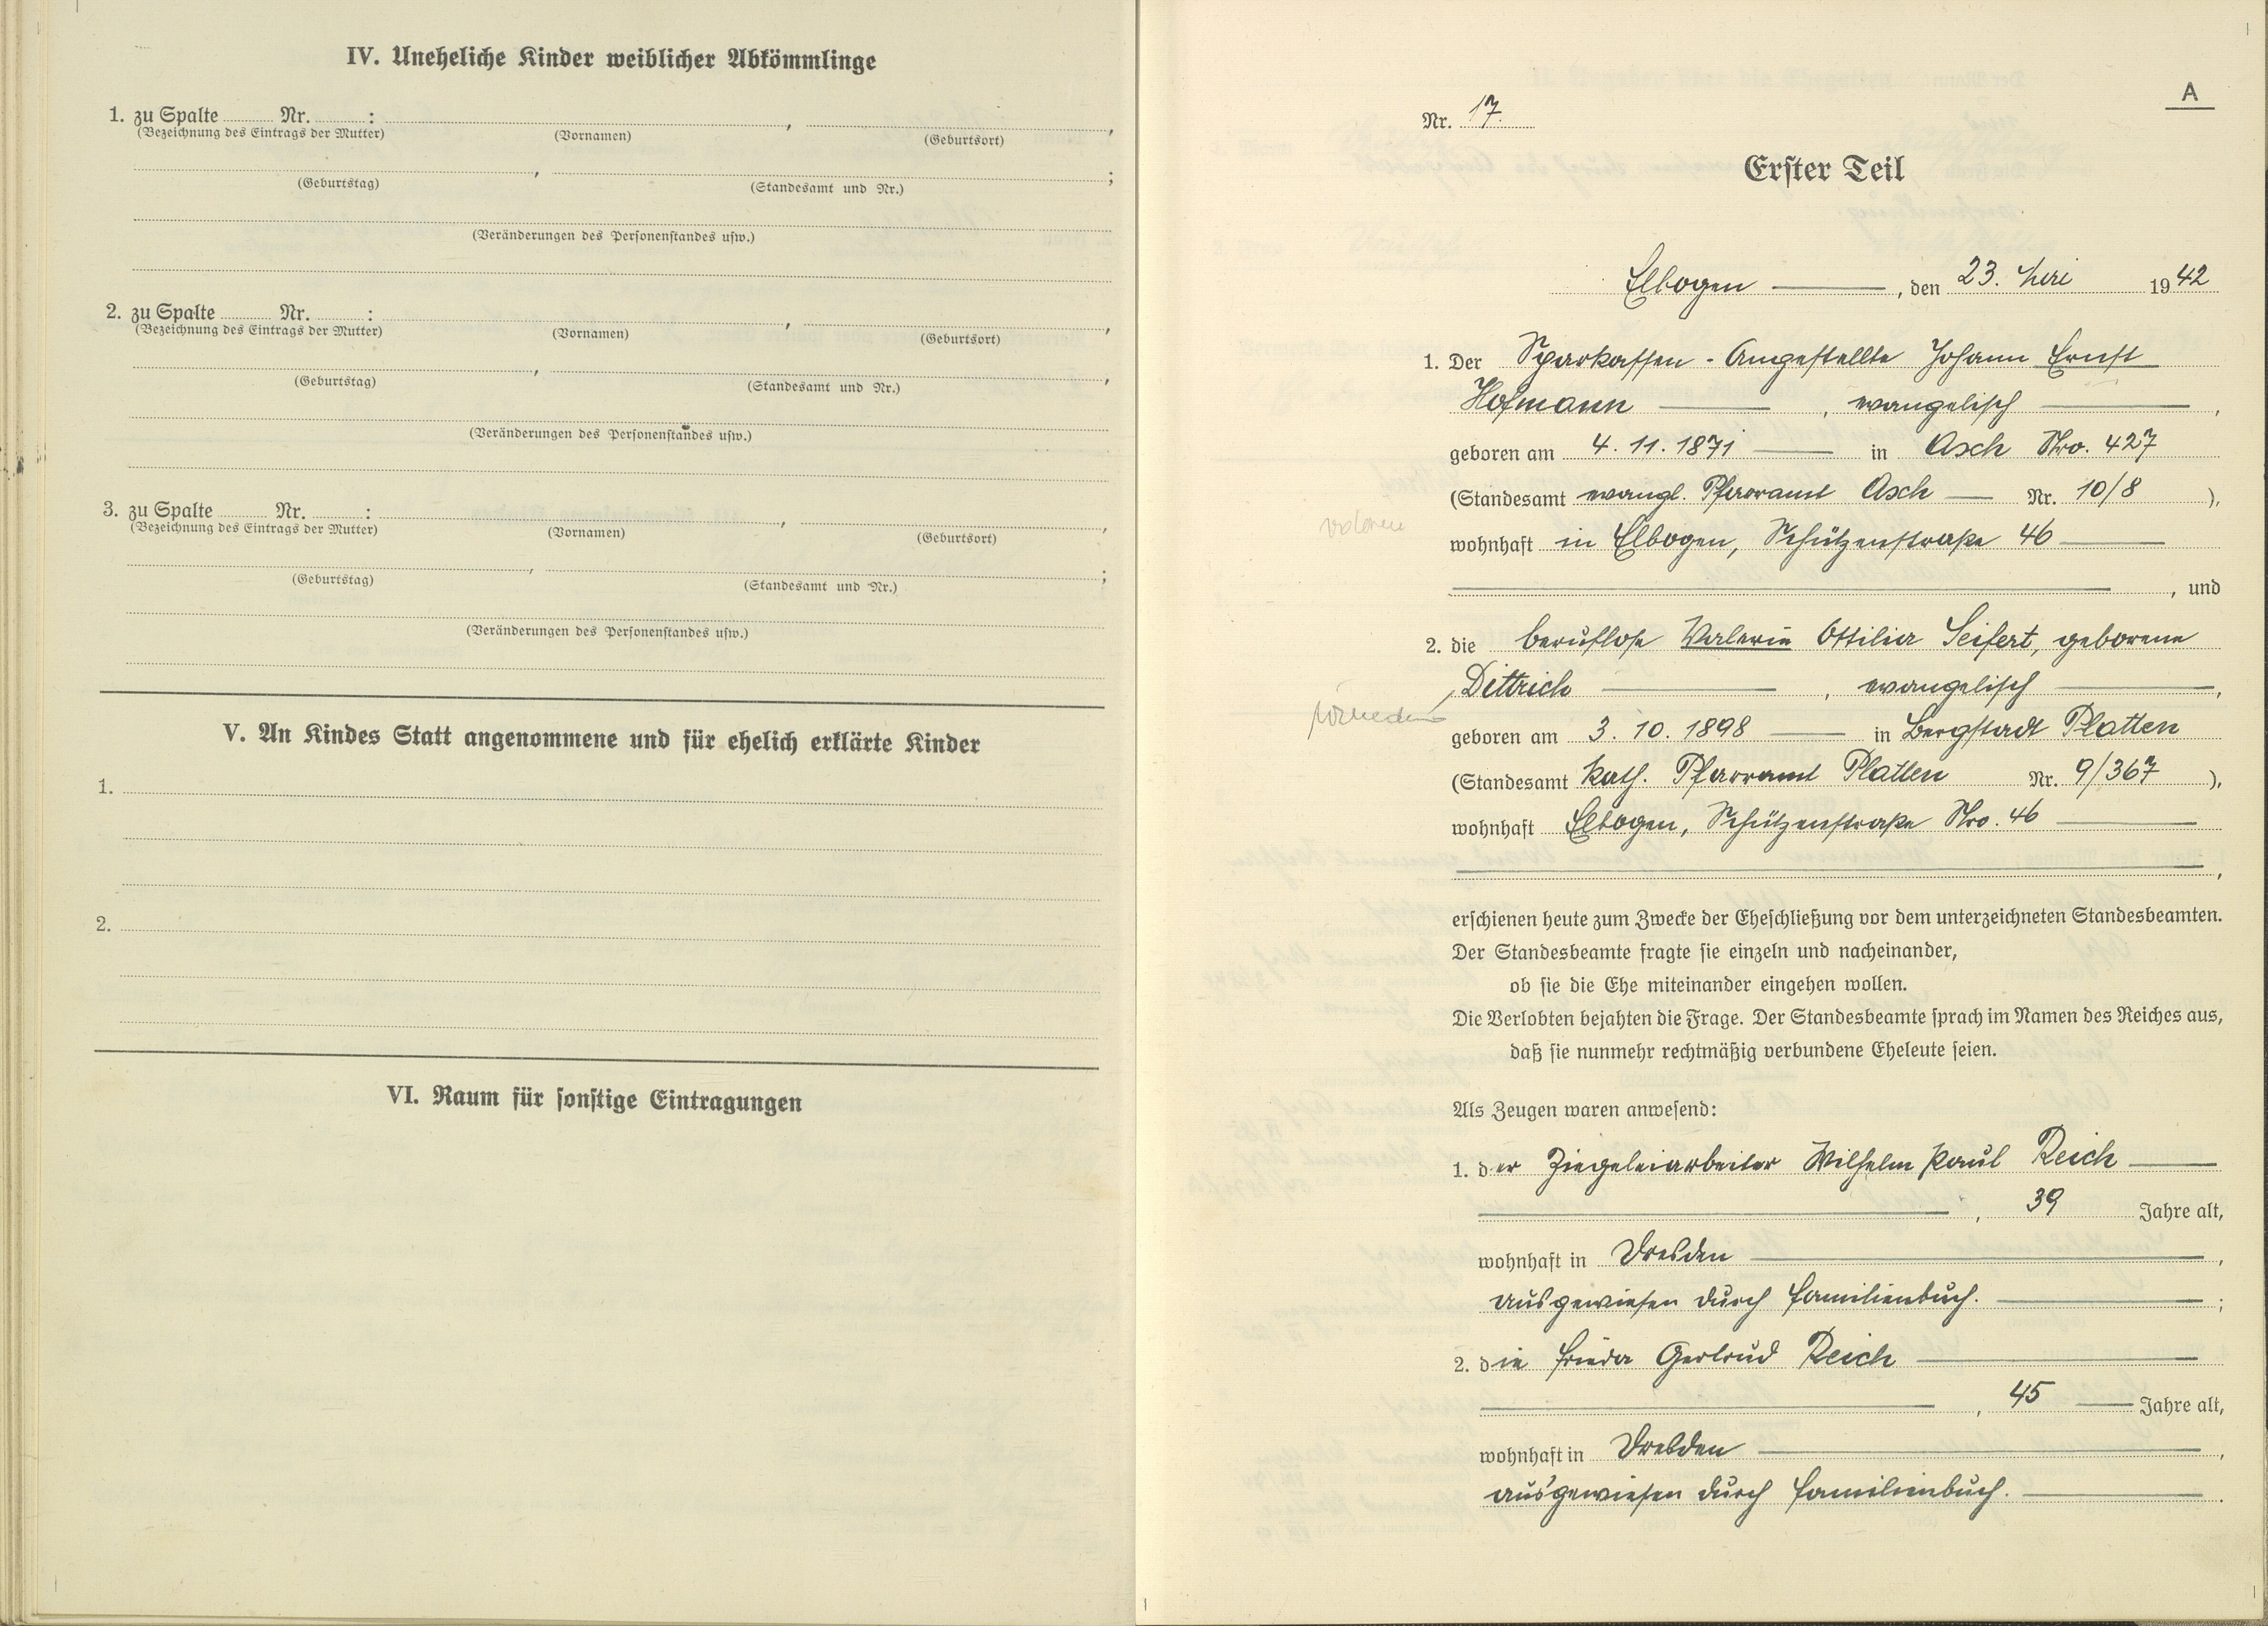 IV. Uneheliche Kinder weiblicher Abkömmlinge
1. zu Spalte Nr. : , ,
(Bezeichnung des Eintrags der Mutter) (Vornamen) (Geburtsort)
, ;
(Geburtstag) (Standesamt und Nr.)
(Veränderungen des Personenstandes usw.)
2. zu Spalte Nr. : , ,
(Bezeichnung des Eintrags der Mutter) (Vornamen) (Geburtsort)
, ,
(Geburtstag) (Standesamt und Nr.)
(Veränderungen des Personenstandes usw.)
3. zu Spalte Nr. : , ,
(Bezeichnung des Eintrags der Mutter) (Vornamen) (Geburtsort)
, ;
(Geburtstag) (Standesamt und Nr.)
(Veränderungen des Personenstandes usw.)
V. An Kindes Statt angenommene und für ehelich erklärte Kinder
1.
2.
VI. Raum für sonstige Eintragungen
A
Nr. 17.
Erster Teil
Elbogen, den 23. Mai 1942
1. Der Sparkassen-Angestellte Johann Ernst
Hofmann, evangelisch,
geboren am 4.11.1871 in Asch Nro. 427
(Standesamt evangl. Pfarramt Asch Nr. 10/8),
wohnhaft in Elbogen, Schützenstraße 46
, und
2. die berufslose Valerie Ottilia Seifert, geborene
Dittrich, evangelisch,
geboren am 3.10.1898 in Bergstadt Platten
(Standesamt kath. Pfarramt Platten Nr. 9/367),
wohnhaft Elbogen, Schützenstraße Nro. 46
,
erschienen heute zum Zwecke der Eheschließung vor dem unterzeichneten Standesbeamten.
Der Standesbeamte fragte sie einzeln und nacheinander,
ob sie die Ehe miteinander eingehen wollen.
Die Verlobten bejahten die Frage. Der Standesbeamte sprach im Namen des Reiches aus,
daß sie nunmehr rechtmäßig verbundene Eheleute seien.
Als Zeugen waren anwesend:
1. der Ziegeleiarbeiter Wilhelm Paul Reich
, 39 Jahre alt,
wohnhaft in Dresden,
ausgewiesen durch Familienbuch. ;
2. die Frieda Gertrud Reich
, 45 Jahre alt,
wohnhaft in Dresden,
ausgewiesen durch Familienbuch. .